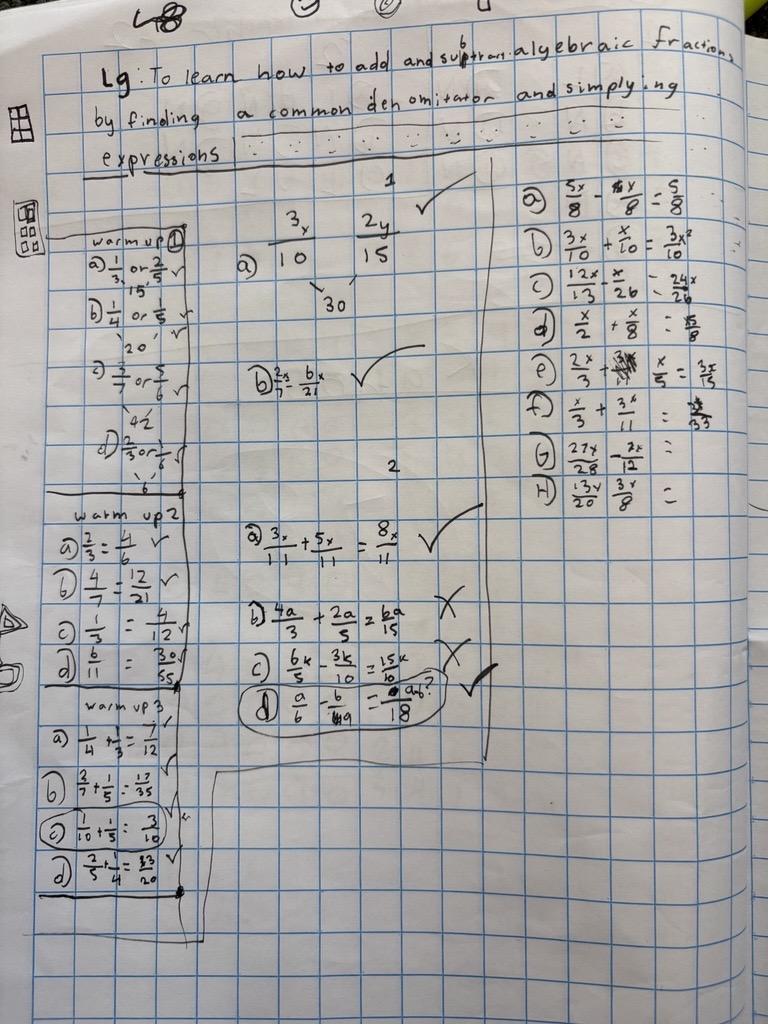 Lg: To learn how to add and subtract algebraic fractions
by finding a common denomitator and simplying
expressions
warm up 1
a) 1/3 or 2/5
15
b) 1/4 or 1/5
20
c) 3/7 or 5/6
42
d) 2/3 or 1/6
6
warm up 2
a) 2/3 = 4/6
b) 4/7 = 12/21
c) 1/3 = 4/12
d) 6/11 = 30/55
warm up 3
a) 1/4 + 1/3 = 7/12
b) 2/7 + 1/5 = 17/35
c) 1/10 + 1/5 = 3/10
d) 2/5 + 1/4 = 13/20
1
a) 3x/10 2y/15
30
b) 2x/7 = 6x/21
2
a) 3x/11 + 5x/11 = 8x/11
b) 4a/3 + 2a/5 = 6a/15
c) 6k/5 - 3k/10 = 15k/10
d) a/6 - b/9 = ab?/18
a) 5x/8 - x/8 = 5/8
b) 3x/10 + x/10 = 3x²/10
c) 12x/13 - x/26 = 24x/26
d) x/2 + x/8 = /8
e) 2x/3 + x/5 = 3x/15
f) x/3 + 3x/11 = /33
G) 27x/28 - 2x/12 =
H) 13x/20 3x/8 =